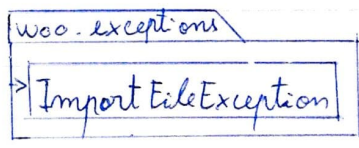 woo.exceptions
ImportFileException